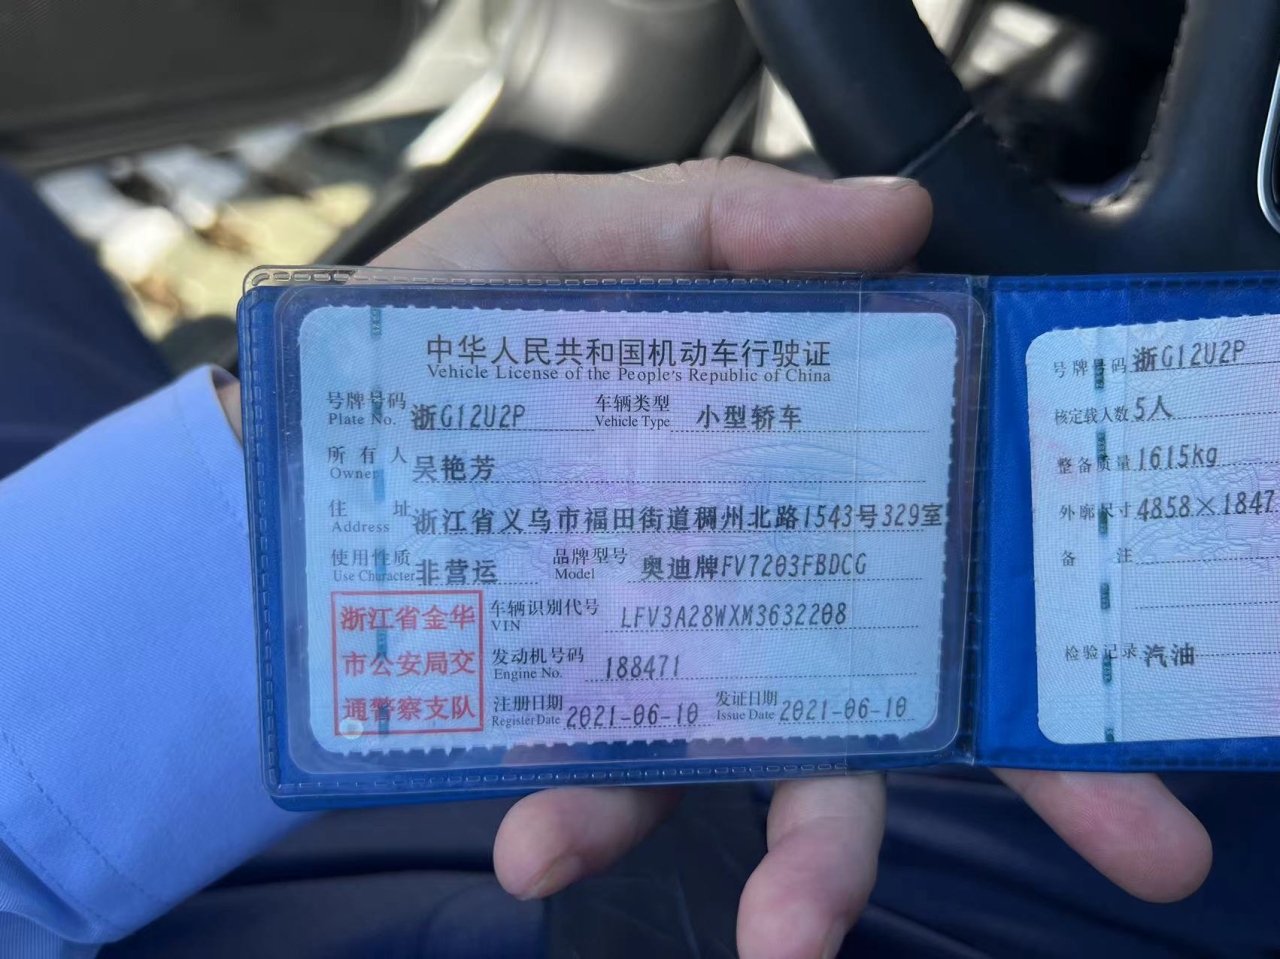 中华人民共和国机动车行驶证
Vehicle License of the People's Republic of China
号牌号码 浙G12U2P 车辆类型 小型轿车
Plate No. Vehicle Type
所有人 吴艳芳
Owner
住址 浙江省义乌市福田街道稠州北路1543号329室
Address
使用性质 非营运 品牌型号 奥迪牌FV7203FBDCG
Use Character Model
浙江省金华
市公安局交
通警察支队
车辆识别代号 LFV3A28WXM3632208
VIN
发动机号码 188471
Engine No.
注册日期 2021-06-10 发证日期 2021-06-10
Register Date Issue Date
号牌号码 浙G12U2P
核定载人数 5人
整备质量 1615kg
外廓尺寸 4858×1847
备注
检验记录 汽油